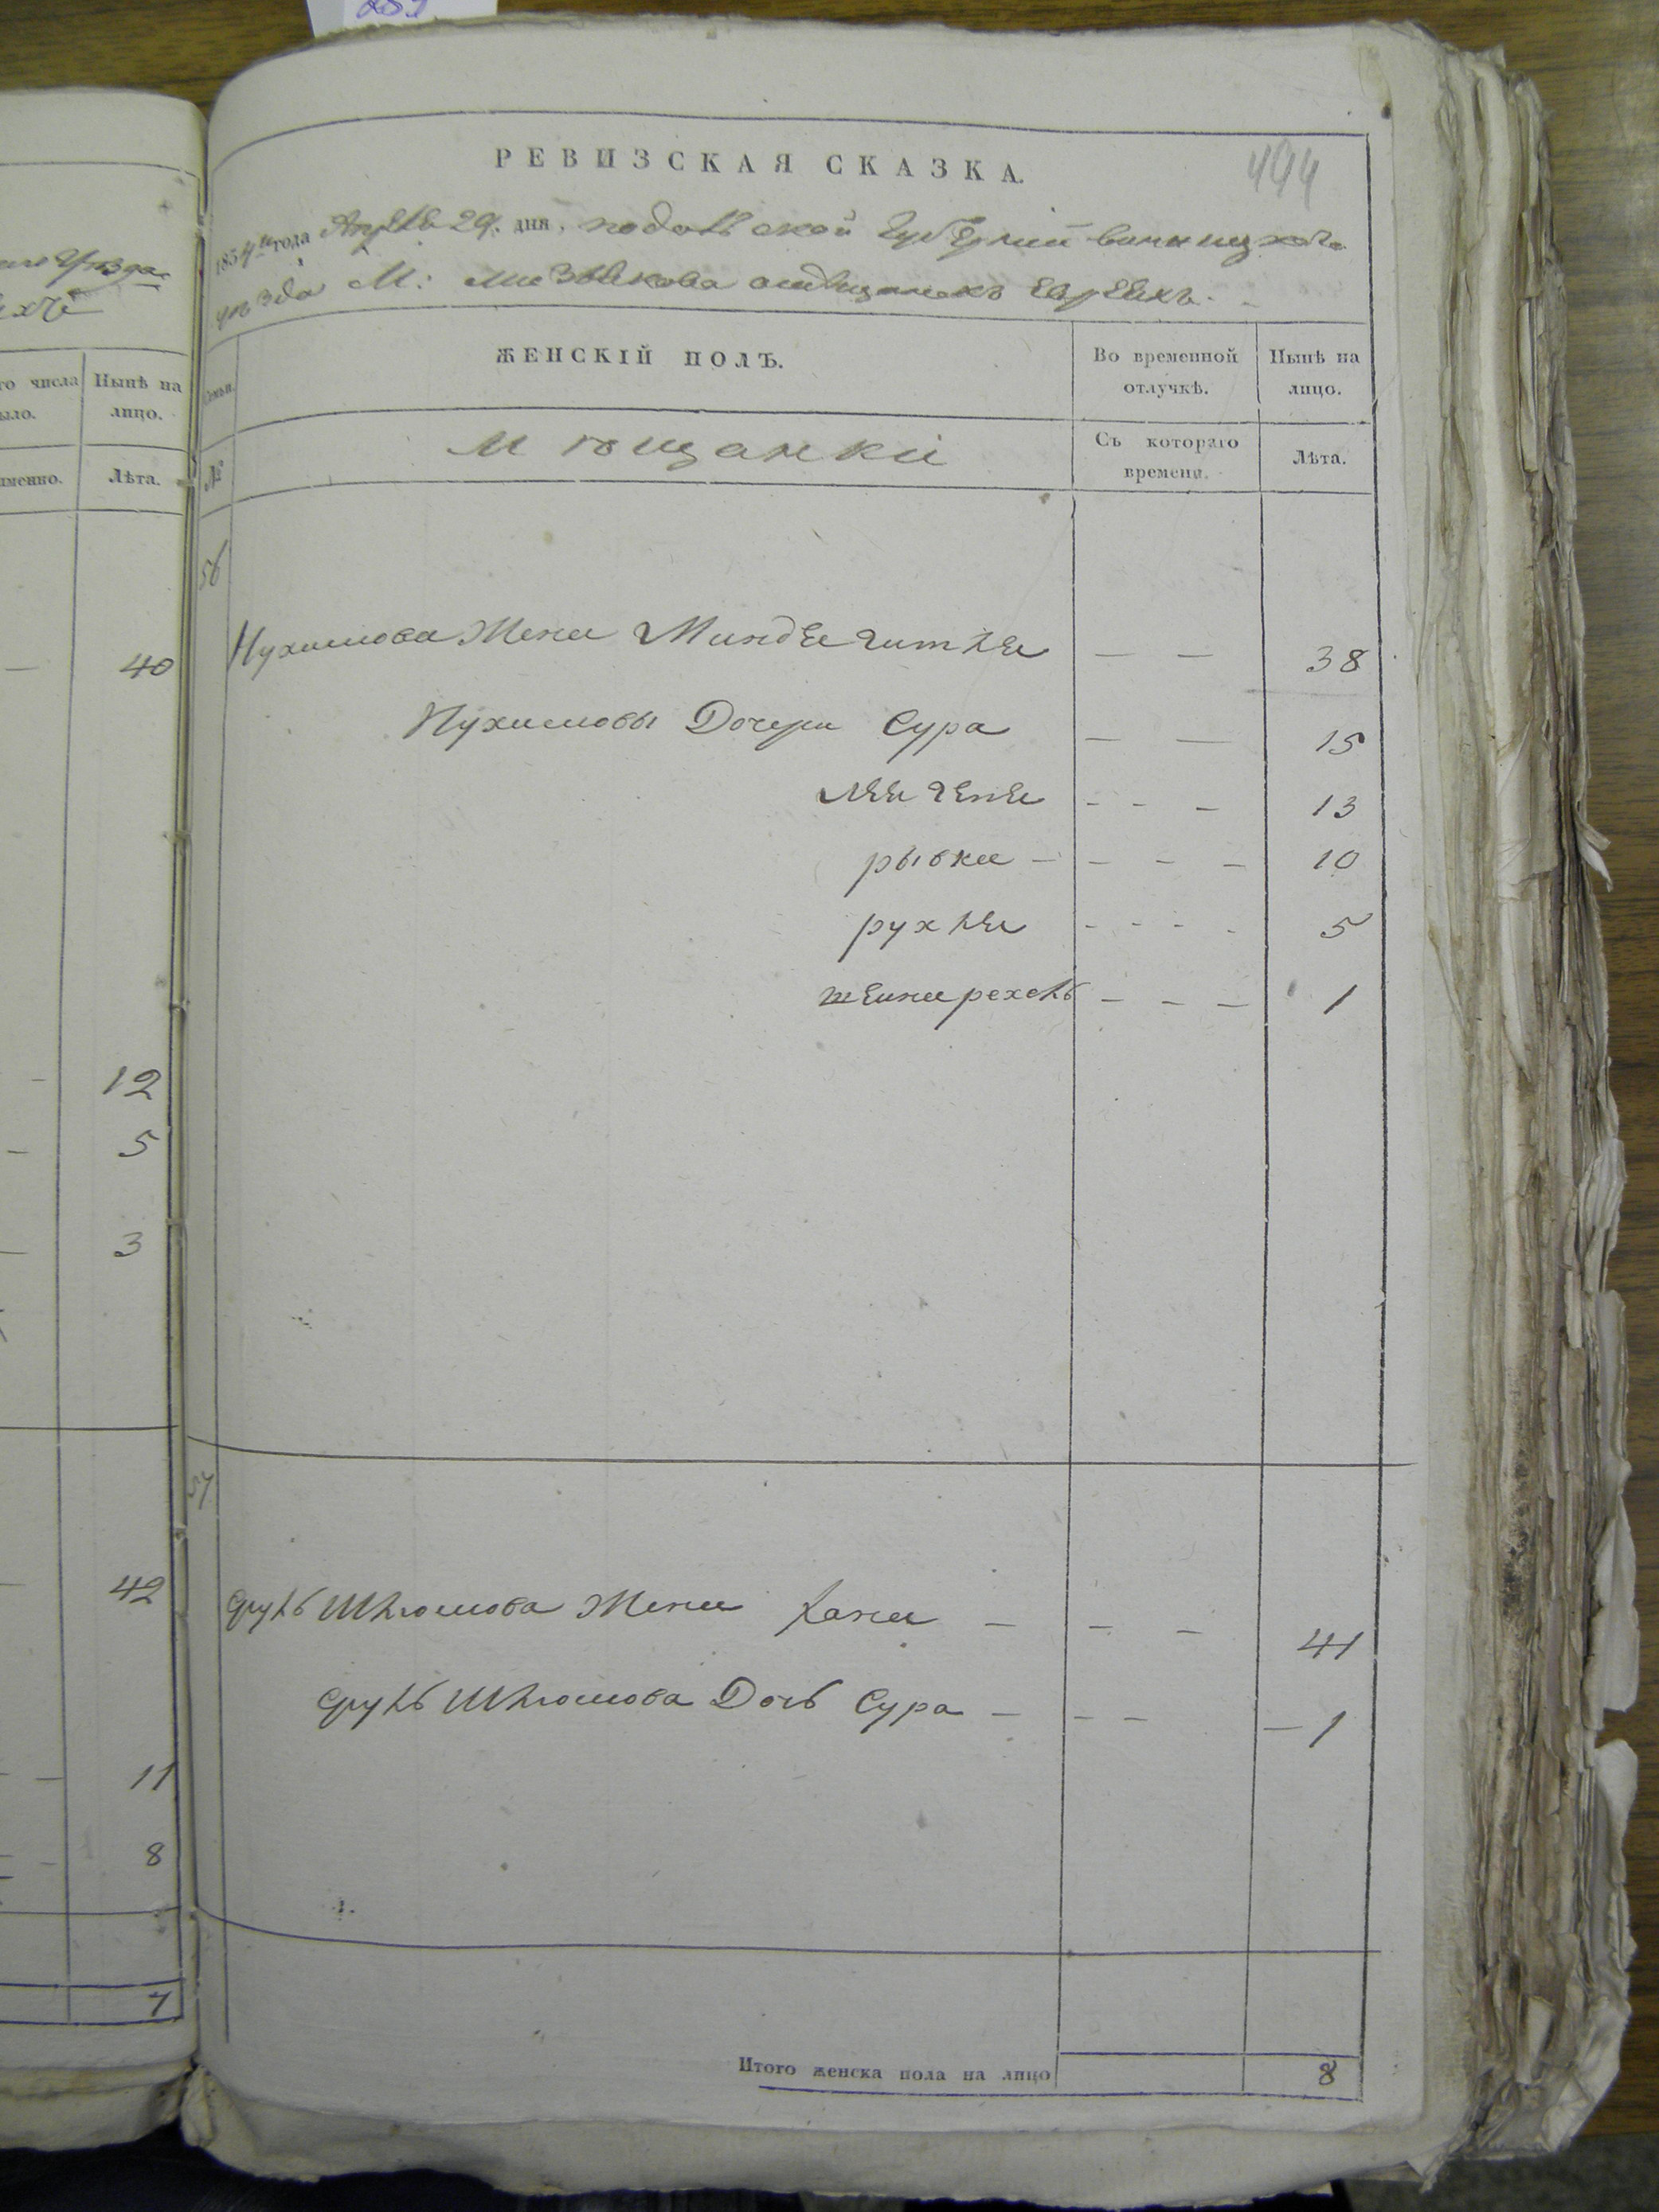 РЕВИЗСКАЯ СКАЗКА.
494
1854го года Апреля 29. дня, подольской Губернии винницкого
уезда М: Мизякова о мещанахъ Евреяхъ.
го числа
было.
Нынѣ на
лицо.
именно.
Лѣта.
40
12
5
3
42
11
8
7
Семьи.
ЖЕНСКІЙ ПОЛЪ.
Во временной
отлучкѣ.
Нынѣ на
лицо.
№
Мещанки
Съ котораго
времени.
Лѣта.
56
Нухимова Жена Миндля Гитля — — 38
Нухимовы Дочери Сура — — 15
Лея Геня - - - 13
рывка - - - - 10
рухля - - - - 5
шейна рехель - - - 1
57
Сруль Шлюмова Жена Хана — - - 41
Сруль Шлюмова Дочь Сура — - - — 1
Итого женска пола на лицо
8